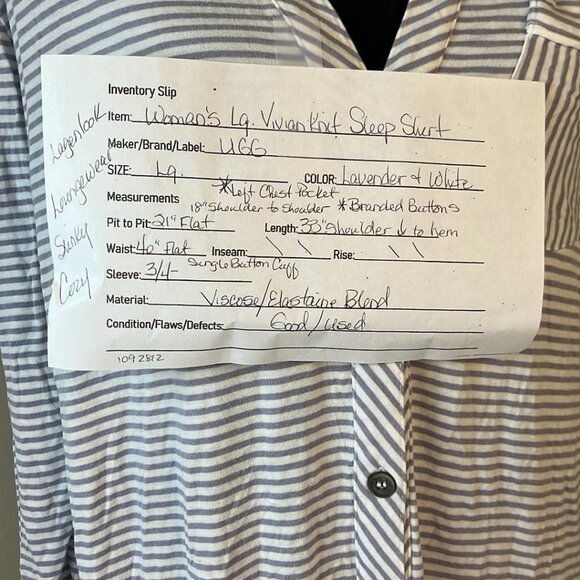 Inventory Slip
Item: Woman's Lg. Vivian Knit Sleep Shirt
Maker/Brand/Label: UGG
SIZE: Lg. COLOR: Lavender & White
*Left Chest Pocket
Measurements 18" Shoulder to Shoulder *Branded Buttons
Pit to Pit: 21" Flat Length: 33" Shoulder ↓ to hem
Waist: 40" Flat Inseam: \ \ Rise: \ \
Sleeve: 3/4- Single Button Cuff
Material: Viscose/Elastaine Blend
Condition/Flaws/Defects: Good/Used
1092812
Lagenlook
Loungewear
Slinky
Cozy